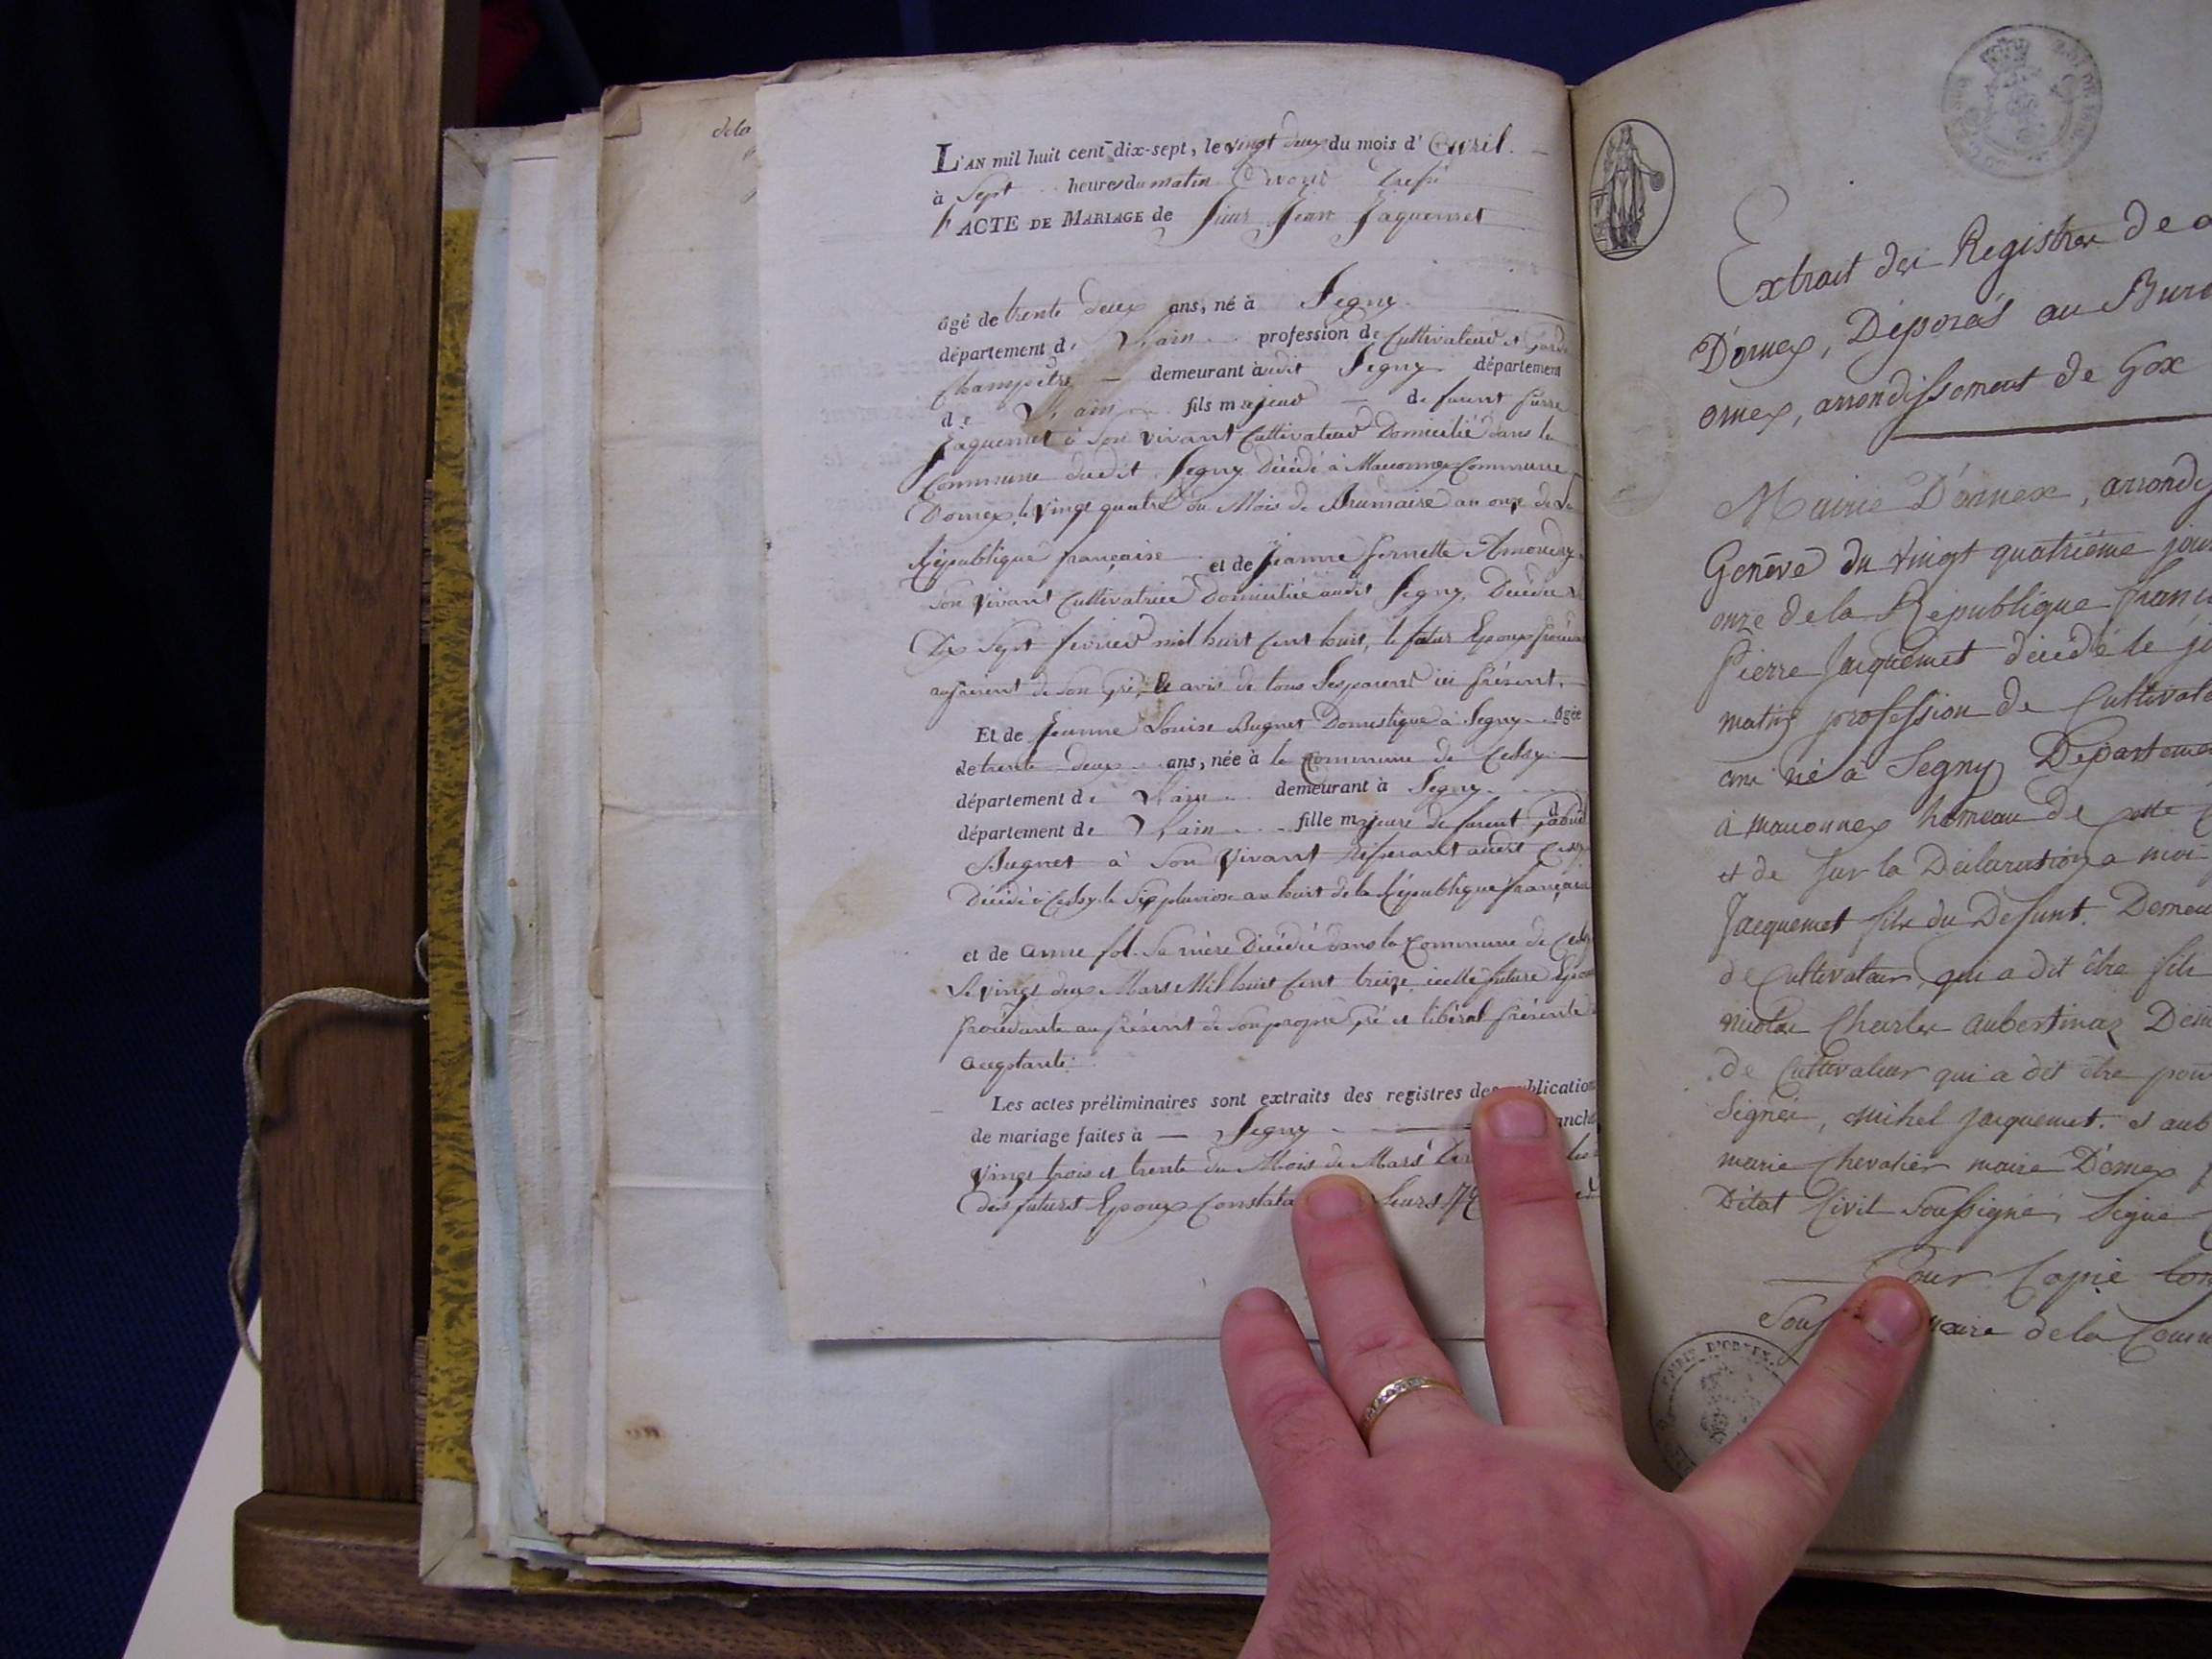 de la
L'AN mil huit cent dix-sept, le vingt deux du mois d' avril.
à Sept heures du matin
ACTE DE MARIAGE de Sieur Jean Jaquemet
âgé de trente deux ans, né à Segny.
département de L'ain profession de Cultivateur et garde
Champêtre — demeurant audit Segny département
de L'ain fils majeur — de furent pierre
Jaquemet à Son vivant Cultivateur Domicilié dans la
Commune dudit Segny Décédé à Maconnex Commune
Dornex, le vingt quatre du Mois de Brumaire an onze de La
République française et de Jeanne pernette
Son vivant Cultivatrice Domiciliée audit Segny, Décédée le
Dix Sept fevrier mil huit Cent huit, le futur Epoux procédant
au présent de Son gré, & avis de tous Ses parens ici présent.
Et de Jeanne Louise Bugnet Domestique à Segny âgée
de trente deux ans, née à la Commune de Cessy —
département de L'ain demeurant à Segny
département de L'ain fille majeure de furent
Bugnet à Son Vivant audit Cessy
Décédé à Cessy le Six pluviose an huit de la République française
et de anne fol. Sa mère Décédée dans la Commune de Cessy
Le vingt deux Mars Mil huit Cent treize icelle future Epouse
procédante au présent de Son propre gré et libéral présente &
acceptante.
Les actes préliminaires sont extraits des registres des publication
de mariage faites à — Segny anche
Vingt trois et trente du Mois de Mars
des futurs Epoux Constata Leurs
Extrait des Registres De
D'ornex, Déposés au Bure
ornex, arrondissement de Gex
Mairie D'ornex, arrondis
Genêve du vingt quatrième jour
onze de la République franç
Pierre Jacquemet décédé le
matin profession de Cultivate
ans né à Segny Départeme
à maconnex hameau de cette
et de sur la Déclaration a moi
Jacquemet fils du Defunt. Demeu
de Cultivateur, qui a dit être fils
Nicolas Charles aubertinaz Dem
de Cultivateur qui a dit être
Signée, michel jacquemet. et aub
marie Chevalier maire D'ornex
D'état Civil Soussigné, Signé
Pour Copie
Sous maire de la Comm
MAIRIE D'ORNEX